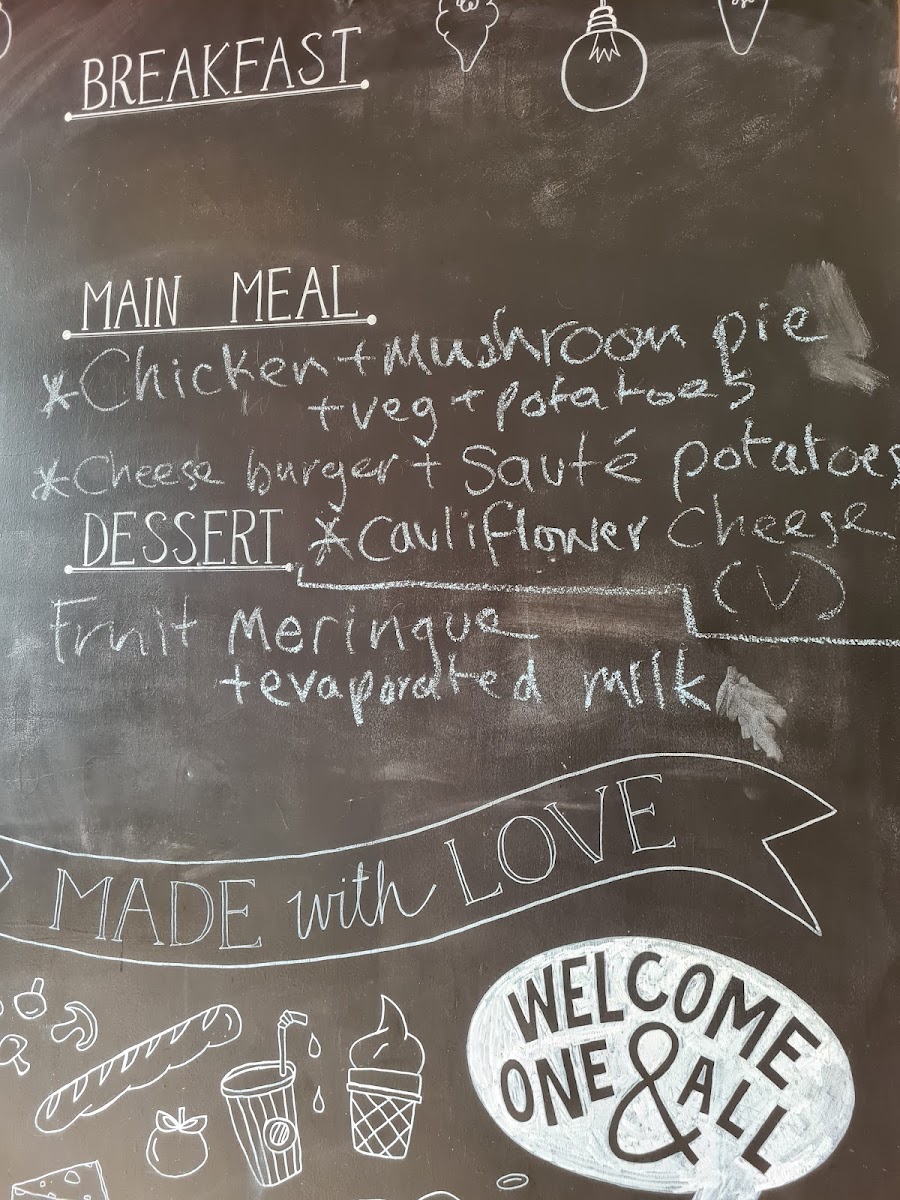 BREAKFAST
MAIN MEAL
*Chicken + mushroom pie
+ veg + potatoes
*Cheese burger + Sauté potatoes
DESSERT *Cauliflower Cheese
(V)
Fruit Meringue
+ evaporated milk
MADE with LOVE
WELCOME
ONE & ALL